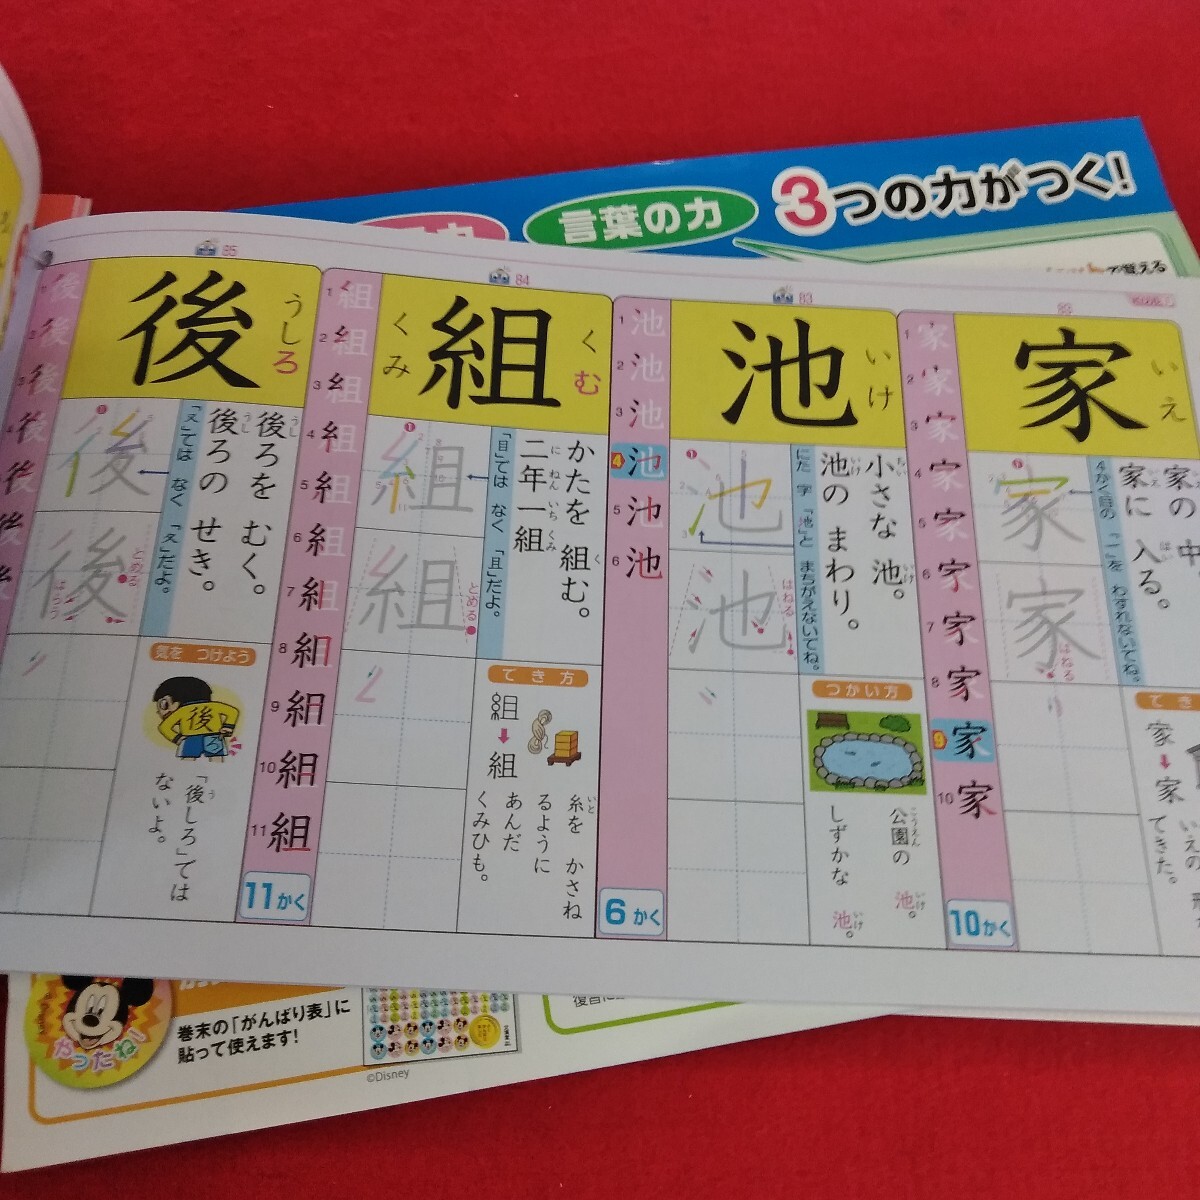 3つの力がつく!
言葉の力
で覚える
82
家
いえ
家の中
家に入る。
4かく目の「一」をわすれないでね。
はねる
家
家
いえの
てきた。
1 2 3 4 5 6 7 8 9 10
10かく
83
池
いけ
小さな池。
池のまわり。
にた字「地」とまちがえないでね。
はねる
つかい方
公園の池。
しずかな池。
1 2 3 4 5 6
6かく
84
組
く
む
くみ
かたを組む。
二年一組
「目」ではなく「且」だよ。
とめる
でき方
組
組
糸をかさね
るように
あんだ
くみひも。
1 2 3 4 5 6 7 8 9 10 11
11かく
85
後
うしろ
後ろをむく。
後ろのせき。
「又」ではなく「夂」だよ。
とめる
はらう
気をつけよう
後
ろ
「後しろ」では
ないよ。
やったね!
巻末の「がんばり表」に
貼って使えます!
©Disney